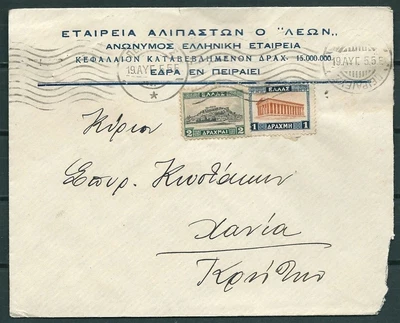 ΕΤΑΙΡΕΙΑ ΑΛΙΠΑΣΤΩΝ Ο "ΛΕΩΝ„
ΑΝΩΝΥΜΟΣ ΕΛΛΗΝΙΚΗ ΕΤΑΙΡΕΙΑ
ΚΕΦΑΛΑΙΟΝ ΚΑΤΑΒΕΒΛΗΜΕΝΟΝ ΔΡΑΧ. 15.000.000
ΕΔΡΑ ΕΝ ΠΕΙΡΑΙΕΙ
19.ΑΥΓ
19.ΑΥΓ
ΕΛΛΑΣ
2 ΔΡΑΧΜΑΙ 2
ΕΛΛΑΣ
1 ΔΡΑΧΜΗ 1
Κύριον
Σπυρ. Κωστάκην
Χανία
Κρήτην